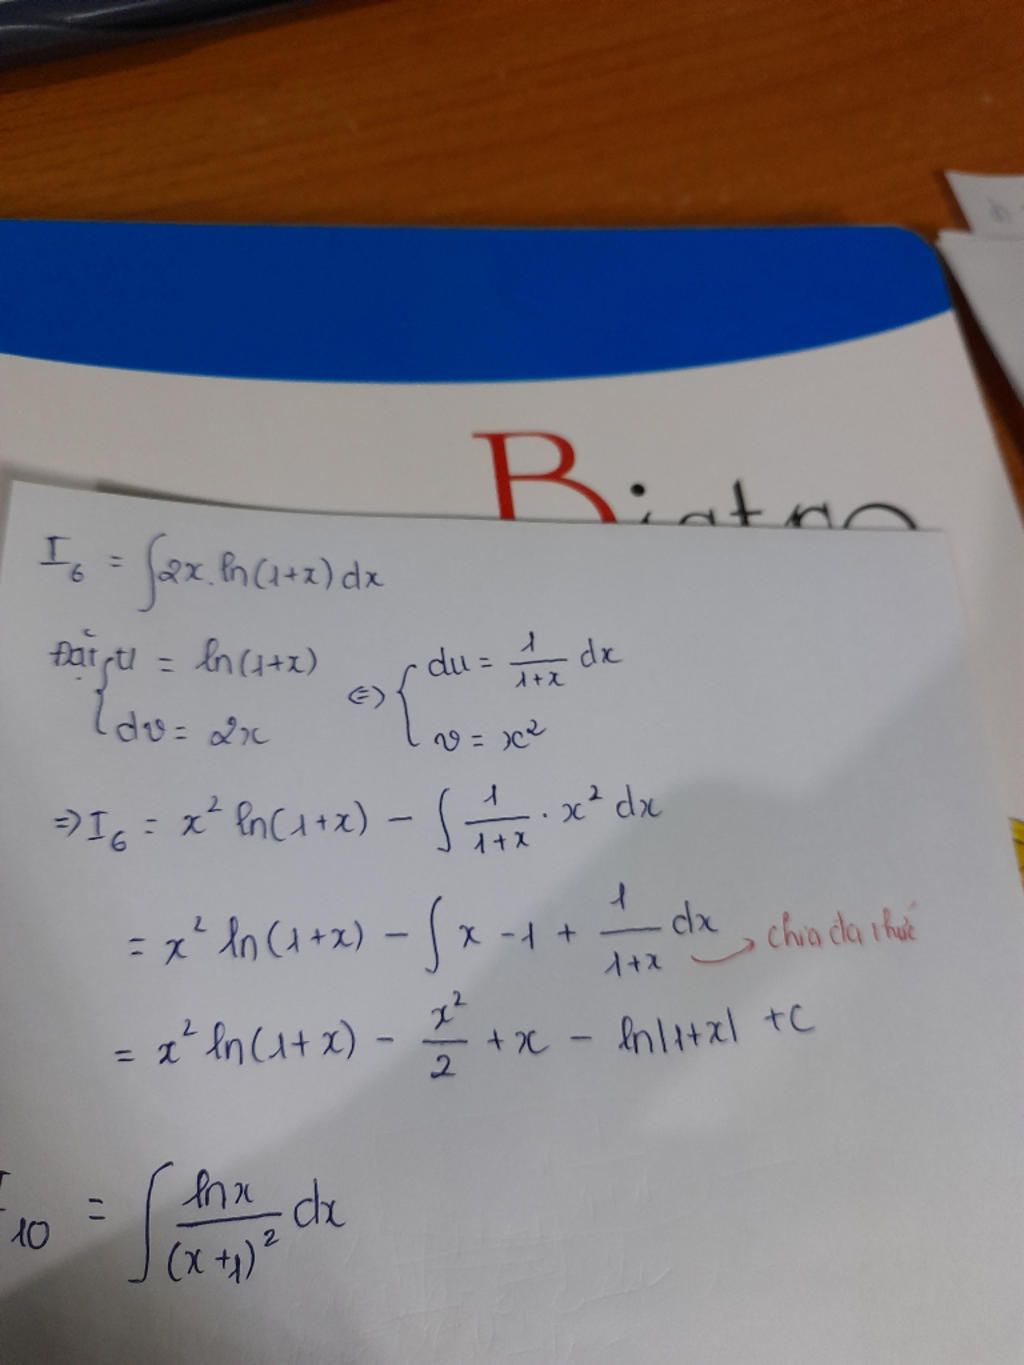 Bistro
I₆ = ∫2x.ln(1+x)dx
Đặt { u = ln(1+x) ⇔ { du = 1/(1+x) dx
dv = 2x v = x²
⇒ I₆ = x² ln(1+x) − ∫ 1/(1+x) . x² dx
= x² ln(1+x) − ∫ x − 1 + 1/(1+x) dx → chia đa thức
= x² ln(1+x) − x²/2 + x − ln|1+x| + C
I₁₀ = ∫ lnx/(x+1)² dx